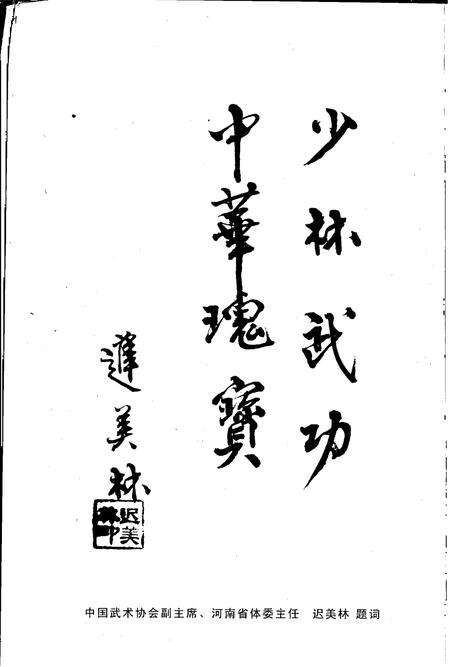 少林武功
中華瑰寶
遲美林
迟美林印
中国武术协会副主席、河南省体委主任 迟美林 题词